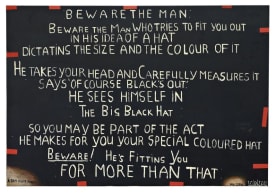 BEWARE THE MAN:
BEWARE THE MAN WHO TRIES TO FIT YOU OUT
IN HIS IDEA OF A HAT
DICTATING THE SIZE AND THE COLOUR OF IT
HE TAKES YOUR HEAD AND CAREFULLY MEASURES IT
SAYS 'OF COURSE BLACK'S OUT'
HE SEES HIMSELF IN
THE BIG BLACK HAT
SO YOU MAY BE PART OF THE ACT
HE MAKES FOR YOU YOUR SPECIAL COLOURED HAT
BEWARE! HE'S FITTING YOU
FOR MORE THAN THAT